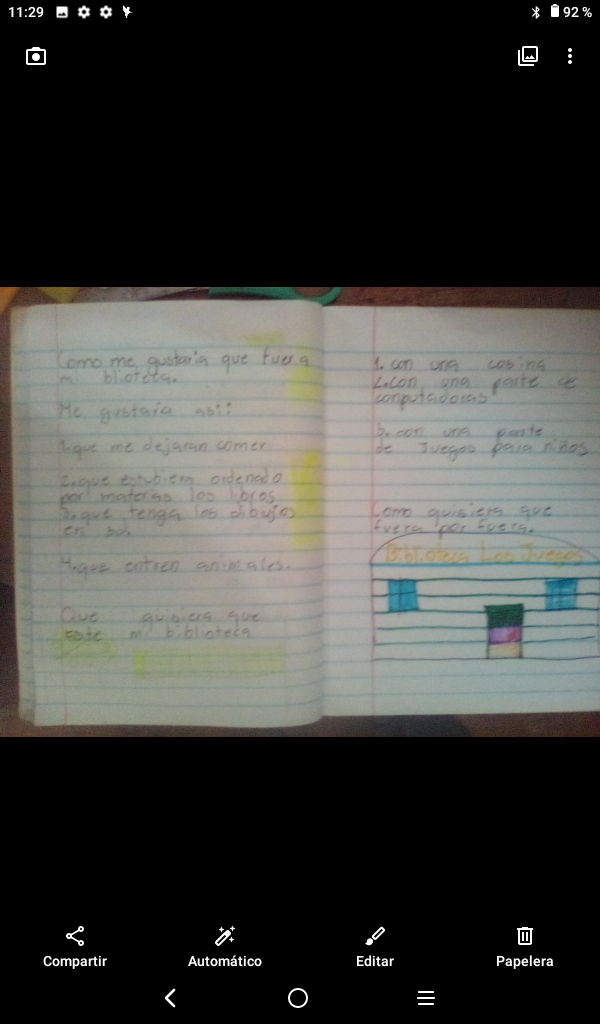 11:29
92 %
Como me gustaria que fuera
mi blioteca.
Me gustaria asi:
1. que me dejaran comer
2. que estubiera ordenado
por materias los libros
3. que tenga los dibujos
en sol.
4. que entren animales.
Que quisiera que
este mi biblioteca
1. con una cosina
2. con una parte de
conputadoras
3. con una parte
de Juegos para niños
Como quisiera que
fuera por fuera.
Biblioteca Los Juegos
Compartir
Automático
Editar
Papelera